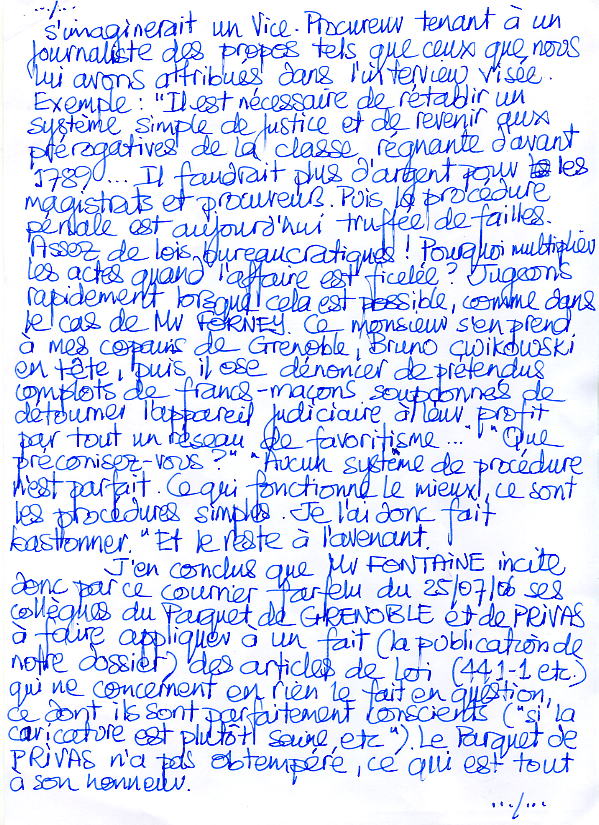 .../...
s'imaginerait un Vice-Procureur tenant à un
journaliste des propos tels que ceux que nous
lui avons attribués dans l'interview visée.
Exemple : "Il est nécessaire de rétablir un
système simple de justice et de revenir aux
prérogatives de la classe régnante d'avant
1789... Il faudrait plus d'argent pour les
magistrats et procureurs. Puis la procédure
pénale est aujourd'hui truffée de failles.
Assez de lois bureaucratiques ! Pourquoi multiplier
les actes quand l'affaire est ficelée ? Jugeons
rapidement lorsque cela est possible, comme dans
le cas de Mr FORNEY. Ce monsieur s'en prend
à mes copains de Grenoble, Bruno CWIKOWSKI
en tête, puis il ose dénoncer de prétendus
complots de francs-maçons soupçonnés de
détourner l'appareil judiciaire à leur profit
par tout un réseau de favoritisme..." "Que
préconisez-vous ?" "Aucun système de procédure
n'est parfait. Ce qui fonctionne le mieux, ce sont
les procédures simples. Je l'ai donc fait
bastonner." Et le reste à l'avenant.
J'en conclus que Mr FONTAINE incite
donc par ce courrier farfelu du 25/07/06 ses
collègues du Parquet de GRENOBLE et de PRIVAS
à faire appliquer à un fait (la publication de
notre dossier) des articles de Loi (441-1 etc.)
qui ne concernent en rien le fait en question,
ce dont ils sont parfaitement conscients ("si la
caricature est plutôt saine, etc"). Le Parquet de
PRIVAS n'a pas obtempéré, ce qui est tout
à son honneur.
.../...